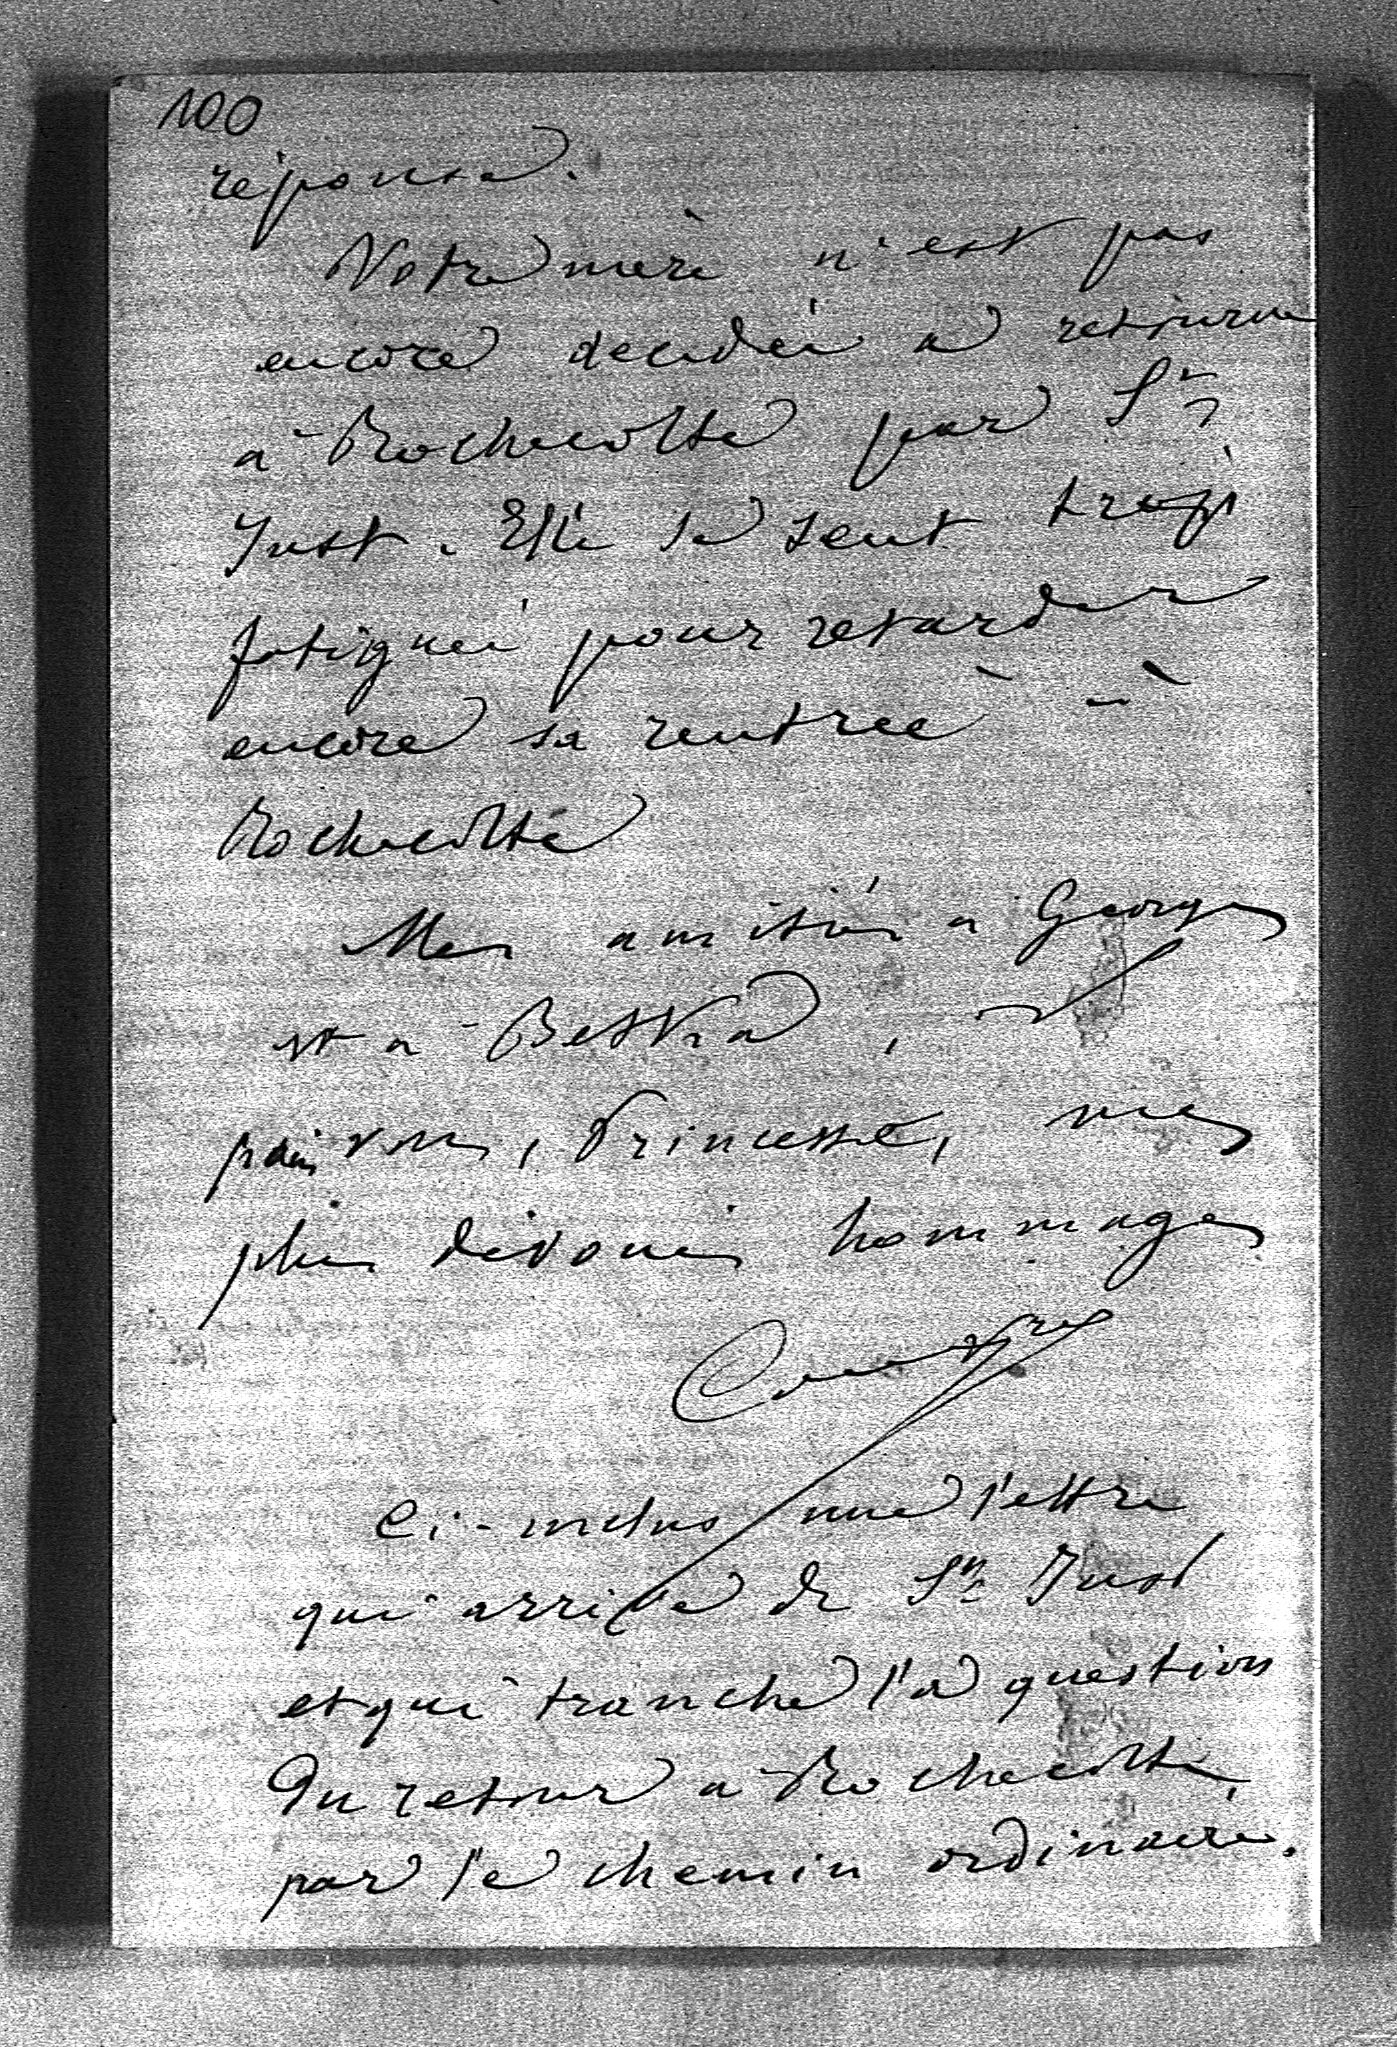 100
réponse.
Votre mère n'est pas
encore decidée a retourne
à Rochecotte par St
Just. Elle se sent trop
fatiguée pour retarder
encore sa rentrée à
Rochecotte
Mes amitiés a Georges
et a Bettka, et
pour vous, Princesse, mes
plus dévoués hommages
Ci-inclus une lettre
qui arrive de St Just
et qui tranche la question
Du retour a Rochecotte,
par le chemin ordinaire.